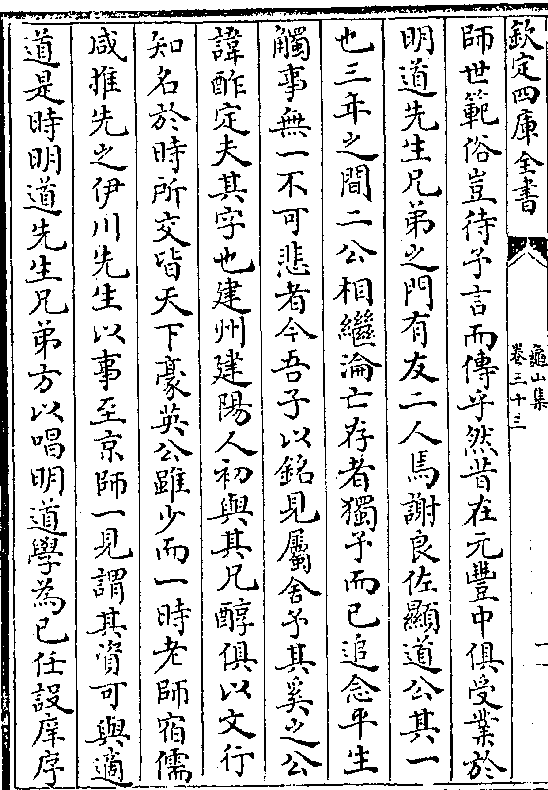 欽定四庫全書
龜山集
卷三十三
師世範俗豈待予言而傳乎然昔在元豐中俱受業於
明道先生兄弟之門有友二人焉謝良佐顯道公其一
也三年之間二公相繼淪亡存者獨予而已追念平生
觸事無一不可悲者今吾子以銘見屬舍予其奚之公
諱酢定夫其字也建州建陽人初與其兄醇俱以文行
知名於時所交皆天下豪英公雖少而一時老師宿儒
咸推先之伊川先生以事至京師一見謂其資可與適
道是時明道先生兄弟方以唱明道學為已任設庠序